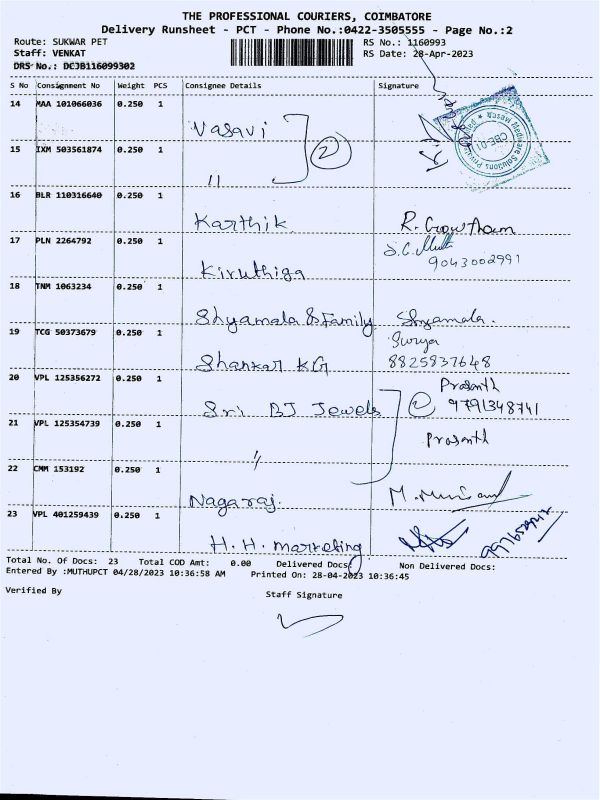 THE PROFESSIONAL COURIERS, COIMBATORE
Delivery Runsheet - PCT - Phone No.:0422-3505555 - Page No.:2
Route: SUKWAR PET
Staff: VENKAT
DRS No.: DCJB116099302
RS No.: 1160993
RS Date: 28-Apr-2023
S No Consignment No Weight PCS Consignee Details Signature
14 MAA 101066036 0.250 1 Vasavi
2
15 IXM 503561874 0.250 1 "
16 BLR 110316640 0.250 1 Karthik R. Gowtham
17 PLN 2264792 0.250 1 Kiruthiga
9043002991
18 TNM 1063234 0.250 1 Shyamala & Family Shyamala.
19 TCG 50373679 0.250 1 Shankar KG Surya
8825837648
20 VPL 125356272 0.250 1 Sri BJ Jewels 2 Prasanth
9791348741
21 VPL 125354739 0.250 1 " Prasanth
22 CMM 153192 0.250 1 Nagaraj.
23 VPL 401259439 0.250 1 H. H. marketing
Total No. Of Docs: 23 Total COD Amt: 0.00 Delivered Docs: Non Delivered Docs:
Entered By :MUTHUPCT 04/28/2023 10:36:58 AM Printed On: 28-04-2023 10:36:45
Verified By Staff Signature